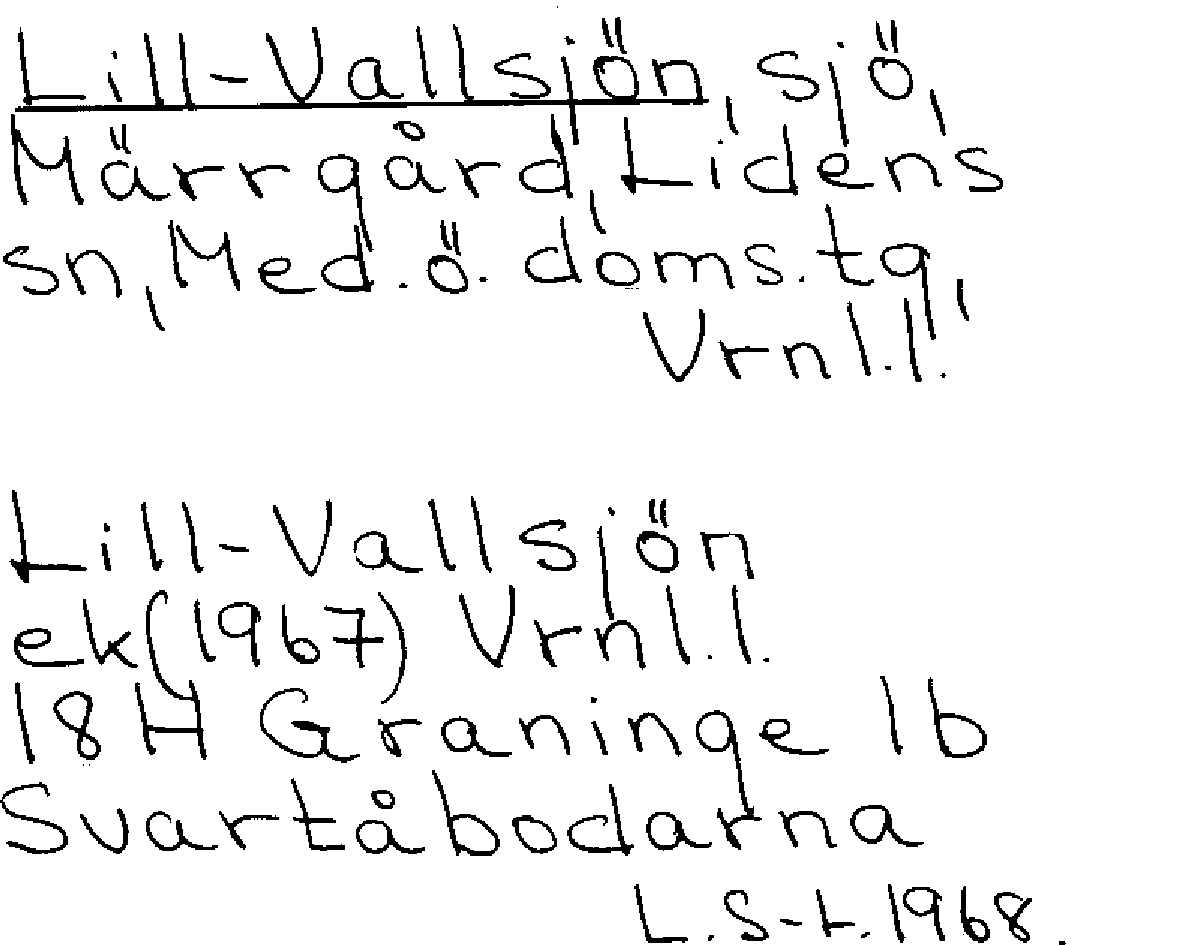 Lill-Vallsjön, sjö,
Märrgård, Lidens
sn, Med. ö. doms. tg,
Vrnl.l.
Lill-Vallsjön
ek (1967) Vrnl.l.
18H Graninge 1b
Svartåbodarna
L. S-t. 1968.